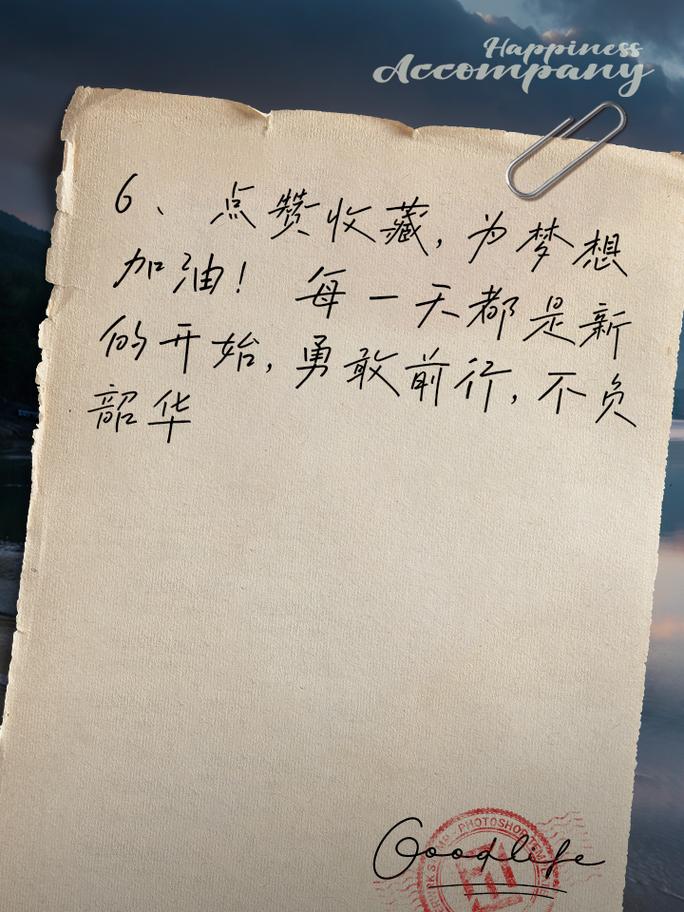 Happiness
Accompany
6、点赞收藏,为梦想
加油! 每一天都是新
的开始,勇敢前行,不负
韶华
PHOTOSHOP
Goodlife